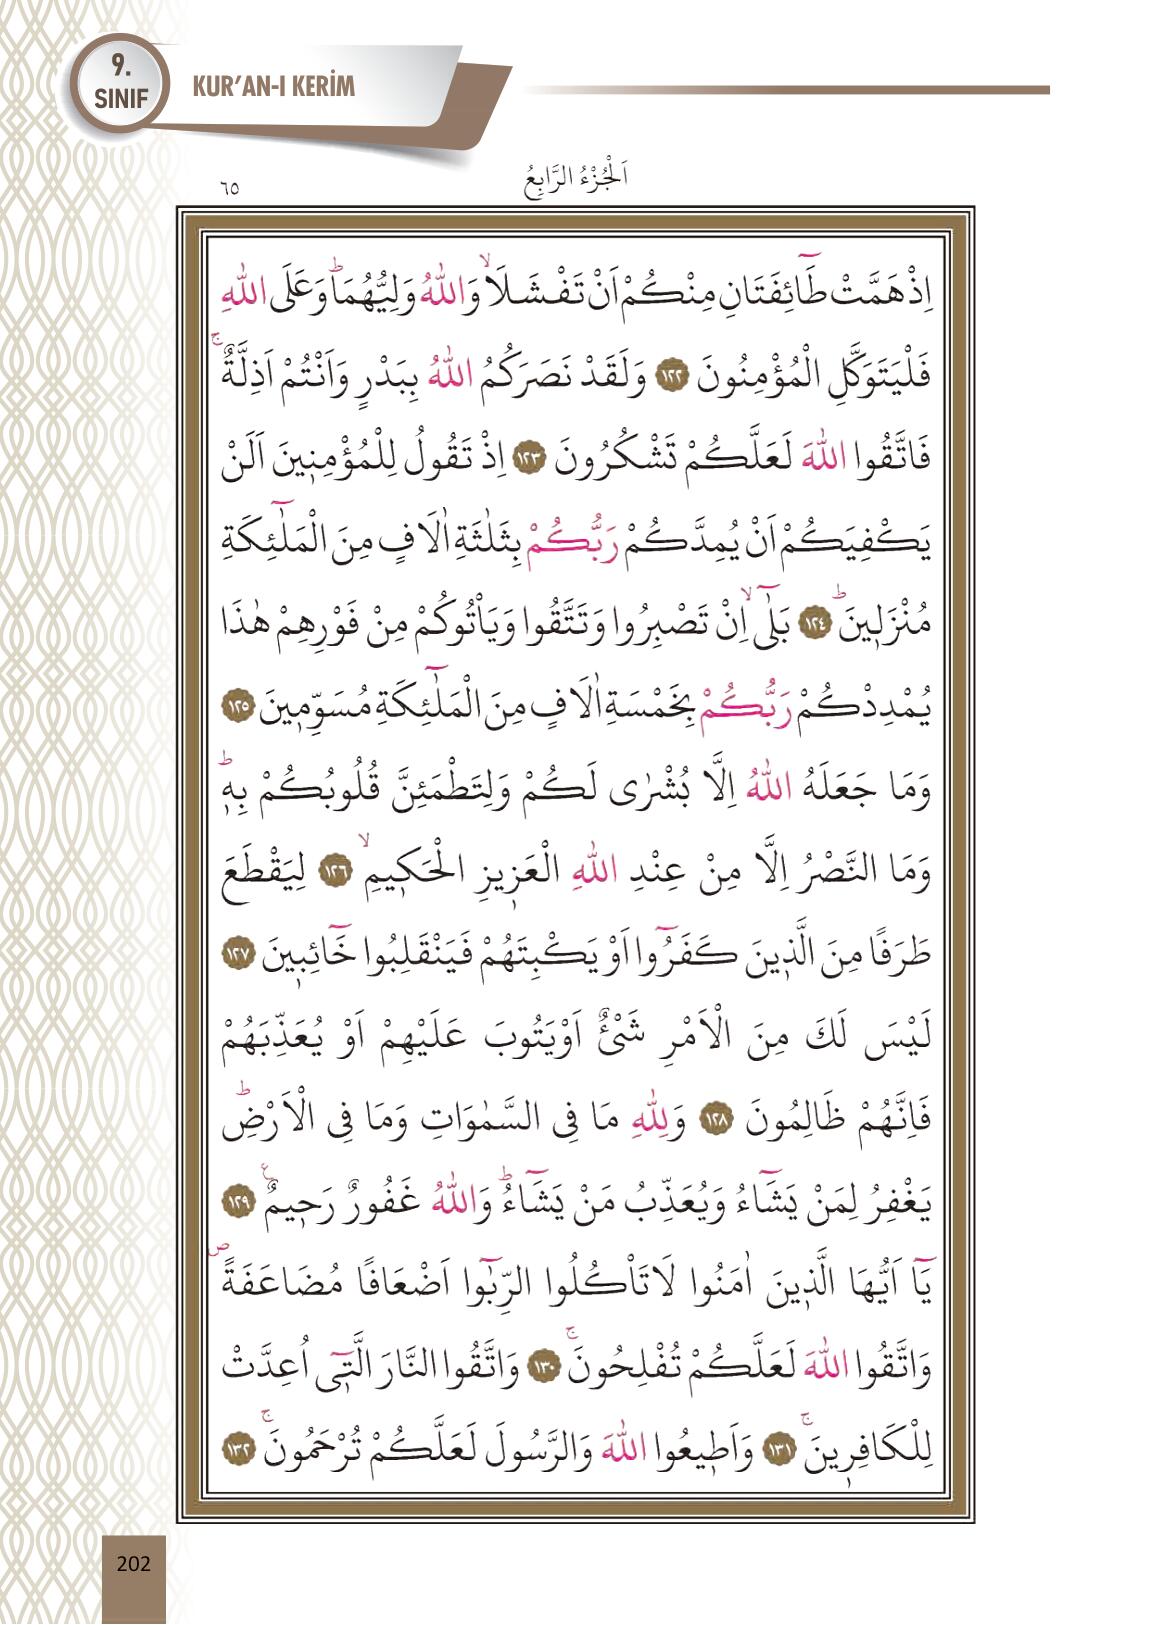 9.
SINIF
KUR'AN-I KERİM
اَلْجُزْءُ الرَّابِعُ
٦٥
اِذْ هَمَّتْ طَٓائِفَتَانِ مِنْكُمْ اَنْ تَفْشَلَاۙ وَاللّٰهُ وَلِيُّهُمَاۜ وَعَلَى اللّٰهِ
فَلْيَتَوَكَّلِ الْمُؤْمِنُونَ ﴿١٢٢﴾ وَلَقَدْ نَصَرَكُمُ اللّٰهُ بِبَدْرٍ وَاَنْتُمْ اَذِلَّةٌۚ
فَاتَّقُوا اللّٰهَ لَعَلَّكُمْ تَشْكُرُونَ ﴿١٢٣﴾ اِذْ تَقُولُ لِلْمُؤْمِن۪ينَ اَلَنْ
يَكْفِيَكُمْ اَنْ يُمِدَّكُمْ رَبُّكُمْ بِثَلٰثَةِ اٰلَافٍ مِنَ الْمَلٰٓئِكَةِ
مُنْزَل۪ينَۜ ﴿١٢٤﴾ بَلٰٓىۙ اِنْ تَصْبِرُوا وَتَتَّقُوا وَيَأْتُوكُمْ مِنْ فَوْرِهِمْ هٰذَا
يُمْدِدْكُمْ رَبُّكُمْ بِخَمْسَةِ اٰلَافٍ مِنَ الْمَلٰٓئِكَةِ مُسَوِّم۪ينَ ﴿١٢٥﴾
وَمَا جَعَلَهُ اللّٰهُ اِلَّا بُشْرٰى لَكُمْ وَلِتَطْمَئِنَّ قُلُوبُكُمْ بِه۪ۜ
وَمَا النَّصْرُ اِلَّا مِنْ عِنْدِ اللّٰهِ الْعَز۪يزِ الْحَك۪يمِۙ ﴿١٢٦﴾ لِيَقْطَعَ
طَرَفًا مِنَ الَّذ۪ينَ كَفَرُٓوا اَوْ يَكْبِتَهُمْ فَيَنْقَلِبُوا خَٓائِب۪ينَ ﴿١٢٧﴾
لَيْسَ لَكَ مِنَ الْاَمْرِ شَيْءٌ اَوْيَتُوبَ عَلَيْهِمْ اَوْ يُعَذِّبَهُمْ
فَاِنَّهُمْ ظَالِمُونَ ﴿١٢٨﴾ وَلِلّٰهِ مَا فِي السَّمٰوَاتِ وَمَا فِي الْاَرْضِۜ
يَغْفِرُ لِمَنْ يَشَٓاءُ وَيُعَذِّبُ مَنْ يَشَٓاءُۜ وَاللّٰهُ غَفُورٌ رَح۪يمٌ۟ ﴿١٢٩﴾
يَٓا اَيُّهَا الَّذ۪ينَ اٰمَنُوا لَا تَأْكُلُوا الرِّبٰٓوا اَضْعَافًا مُضَاعَفَةًۖ
وَاتَّقُوا اللّٰهَ لَعَلَّكُمْ تُفْلِحُونَۚ ﴿١٣٠﴾ وَاتَّقُوا النَّارَ الَّت۪ٓي اُعِدَّتْ
لِلْكَافِر۪ينَۚ ﴿١٣١﴾ وَاَط۪يعُوا اللّٰهَ وَالرَّسُولَ لَعَلَّكُمْ تُرْحَمُونَۚ ﴿١٣٢﴾
202